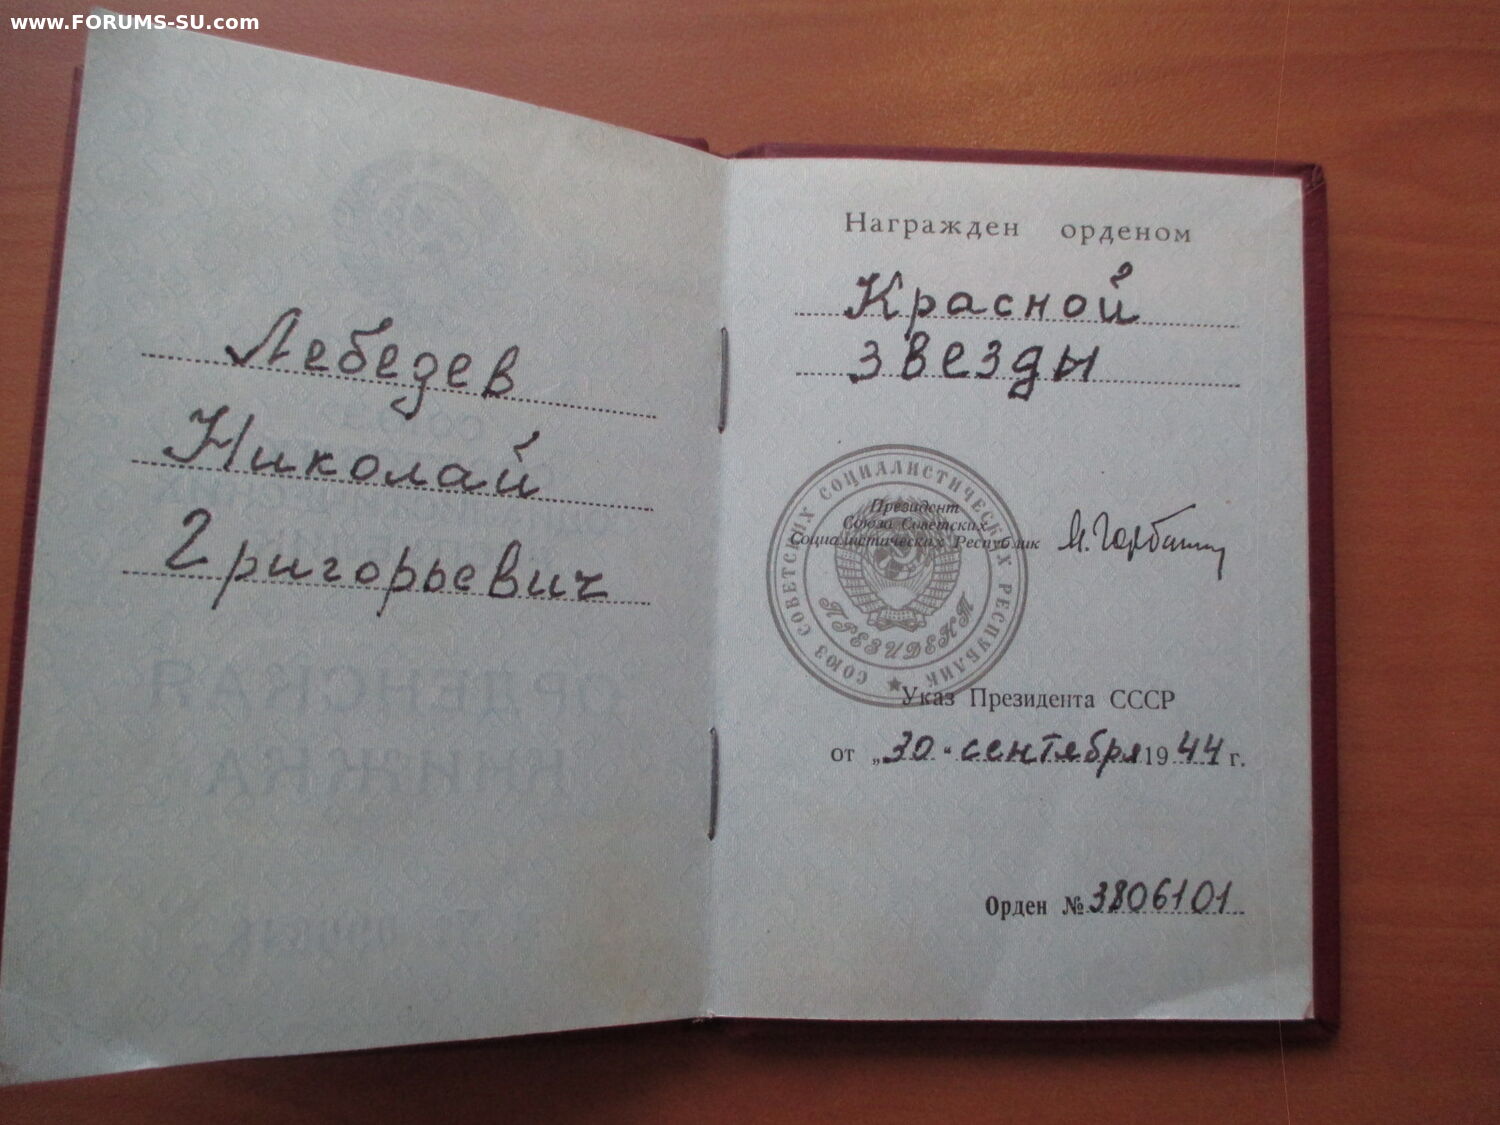 www.FORUMS-SU.com
Лебедев
Николай
Григорьевич
Награжден орденом
Красной
звезды
СОЮЗ СОВЕТСКИХ СОЦИАЛИСТИЧЕСКИХ РЕСПУБЛИК
Президент
Союза Советских
Социалистических Республик
М. Горбачев
ПРЕЗИДЕНТ
Указ Президента СССР
от „30“ сентября 1944 г.
Орден № 3806101
ОРДЕНСКАЯ
КНИЖКА